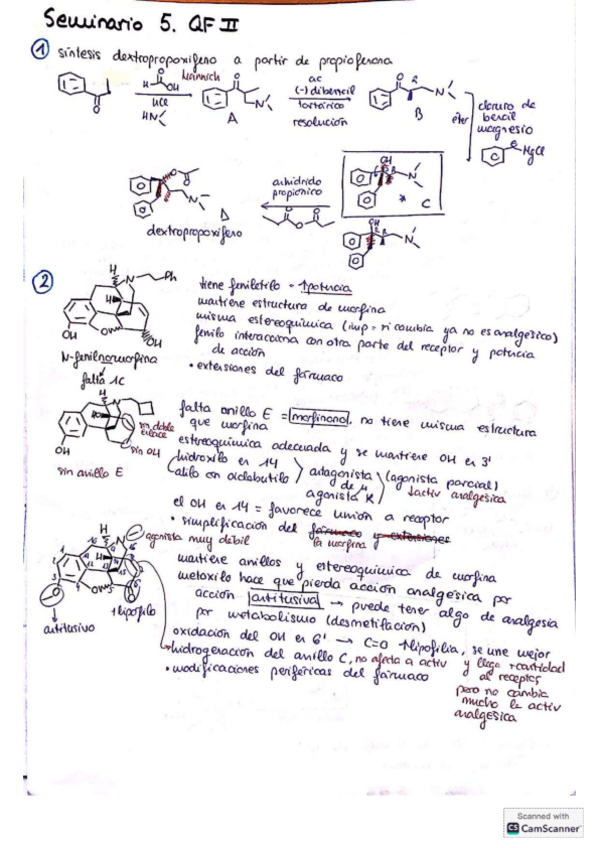 Seminario 5. QF II
① síntesis dextropropoxifeno a partir de propiofenona
H OH Mannich
HCl
HN
A
ac
(-) dibencil
tartárico
resolución
B
éter
cloruro de
bencil
magnesio
MgCl
anhidrido
propionico
OH
* C
OH
D
dextropropoxifeno
②
H N Ph
H
OH O OH
tiene feniletilo = ↑potencia
mantiene estructura de morfina
misma estereoquímica (imp = si cambia ya no es analgésico)
fenilo interacciona con otra parte del receptor y potencia
de acción
• extensiones del fármaco
falta 1C
H N
HO
sin doble
enlace
sin OH
OH
sin anillo E
falta anillo E = morfinano, no tiene misma estructura
que morfina
estereoquimica adecuada y se mantiene OH en 3'
hidroxilo en 14
alilo con ciclobutilo
antagonista
de μ
agonista K
(agonista parcial)
↓activ analgésica
el OH en 14 = favorece unión a receptor
• simplificación del fármaco y extensiones
la morfina
agonista muy débil
H N
H
O
+lipofilo
antitusivo
mantiene anillos y estereoquimica de morfina
metoxilo hace que pierda acción analgésica por
acción antitusiva → puede tener algo de analgesia
por metabolismo (desmetilación)
oxidación del OH en 6' → C=O ↑lipofilia, se une mejor
hidrogenación del anillo C, no afecta a activ y llega +cantidad
al receptor
• modificaciones periféricas del fármaco
pero no cambia
mucho la activ
analgesica
Scanned with
CS CamScanner